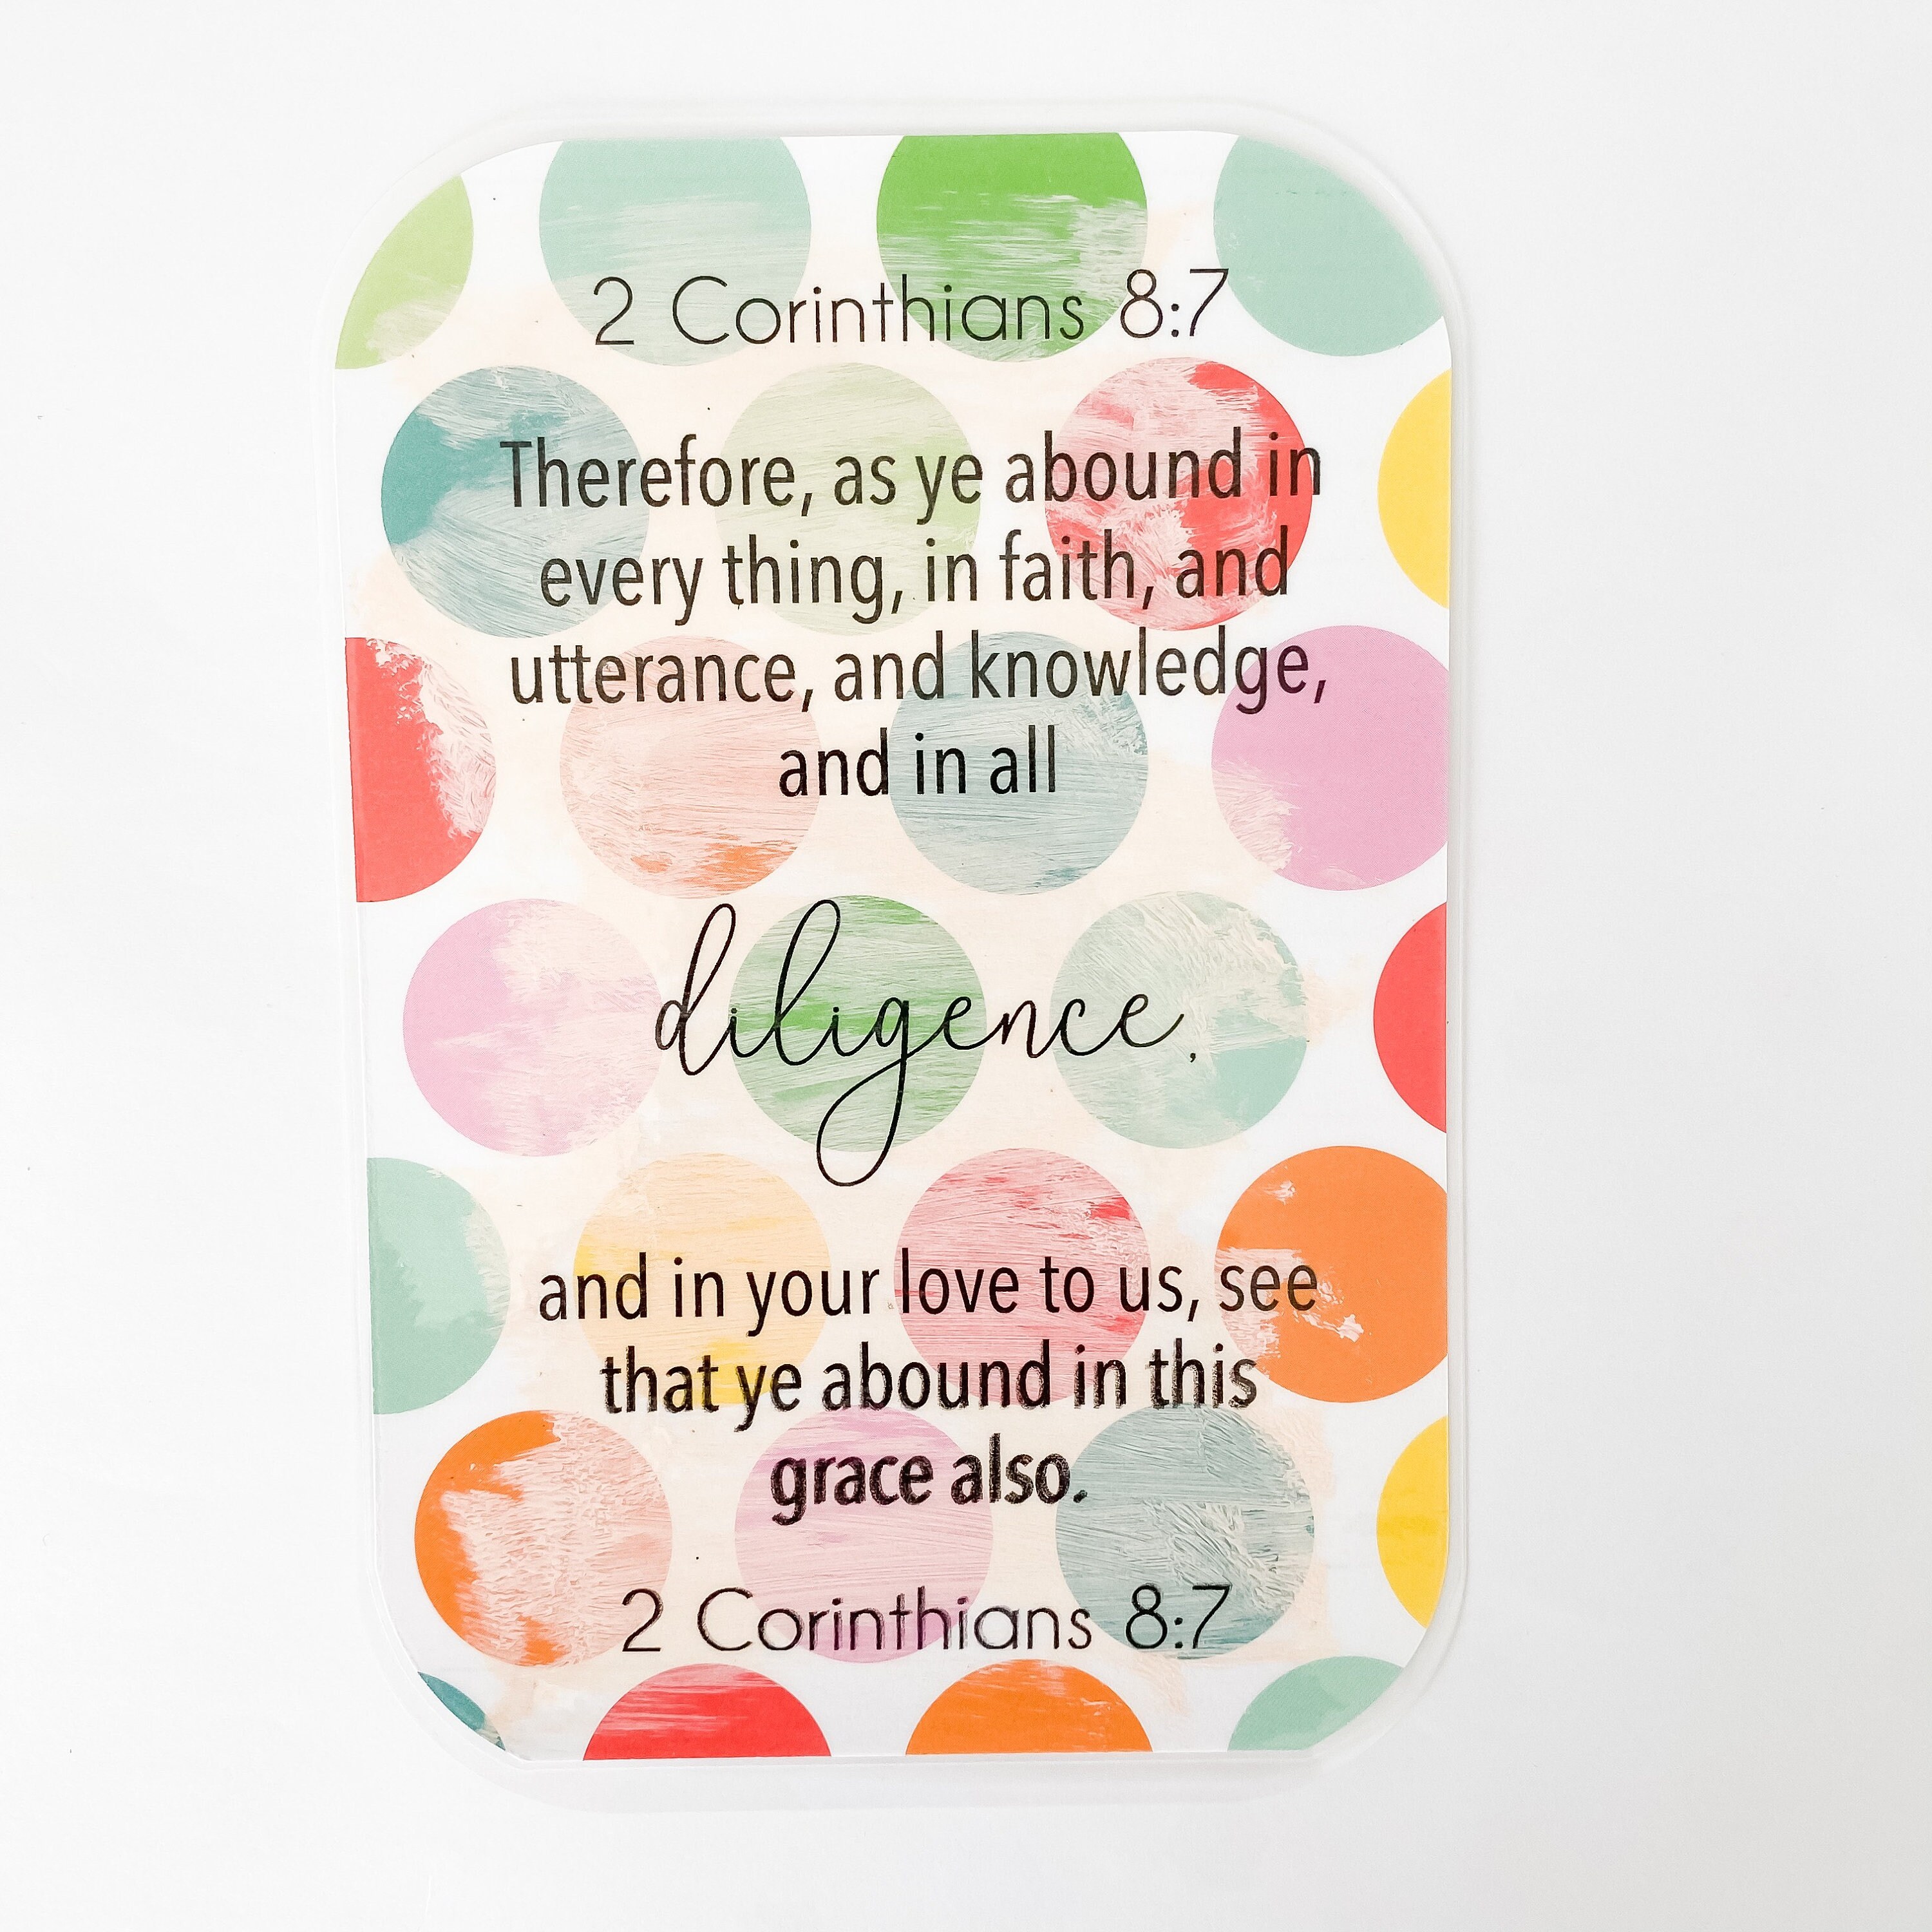 2 Corinthians 8:7
Therefore, as ye abound in
every thing, in faith, and
utterance, and knowledge,
and in all
diligence,
and in your love to us, see
that ye abound in this
grace also.
2 Corinthians 8:7